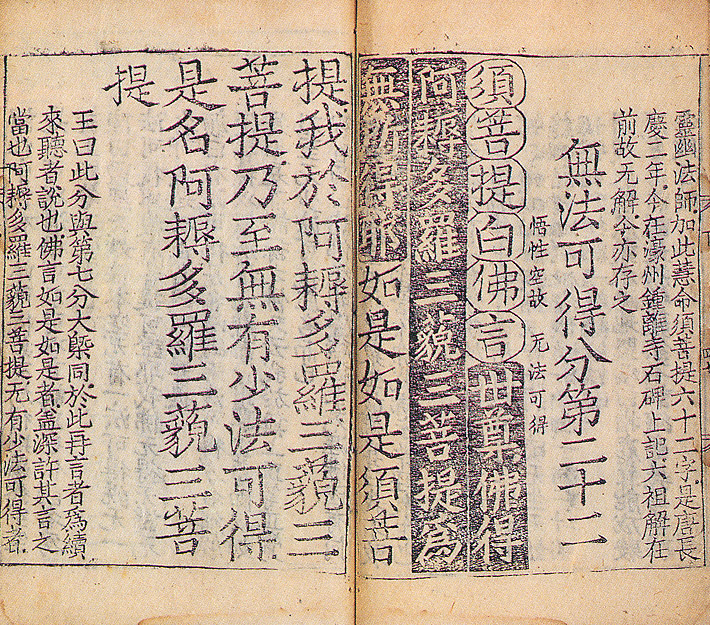 靈幽法師加此慧命須菩提六十二字是唐長
慶二年今在濠州鍾離寺石碑上記六祖解在
前故无解今亦存之
無法可得分第二十二
悟性空故 无法可得
須菩提白佛言世尊佛得
阿耨多羅三藐三菩提為
無所得耶如是如是須菩
提我於阿耨多羅三藐三
菩提乃至無有少法可得
是名阿耨多羅三藐三菩
提
王曰此分與第七分大槩同於此再言者為續
來聽者說也佛言如是如是者盖深許其言之
當也阿耨多羅三藐三菩提无有少法可得者